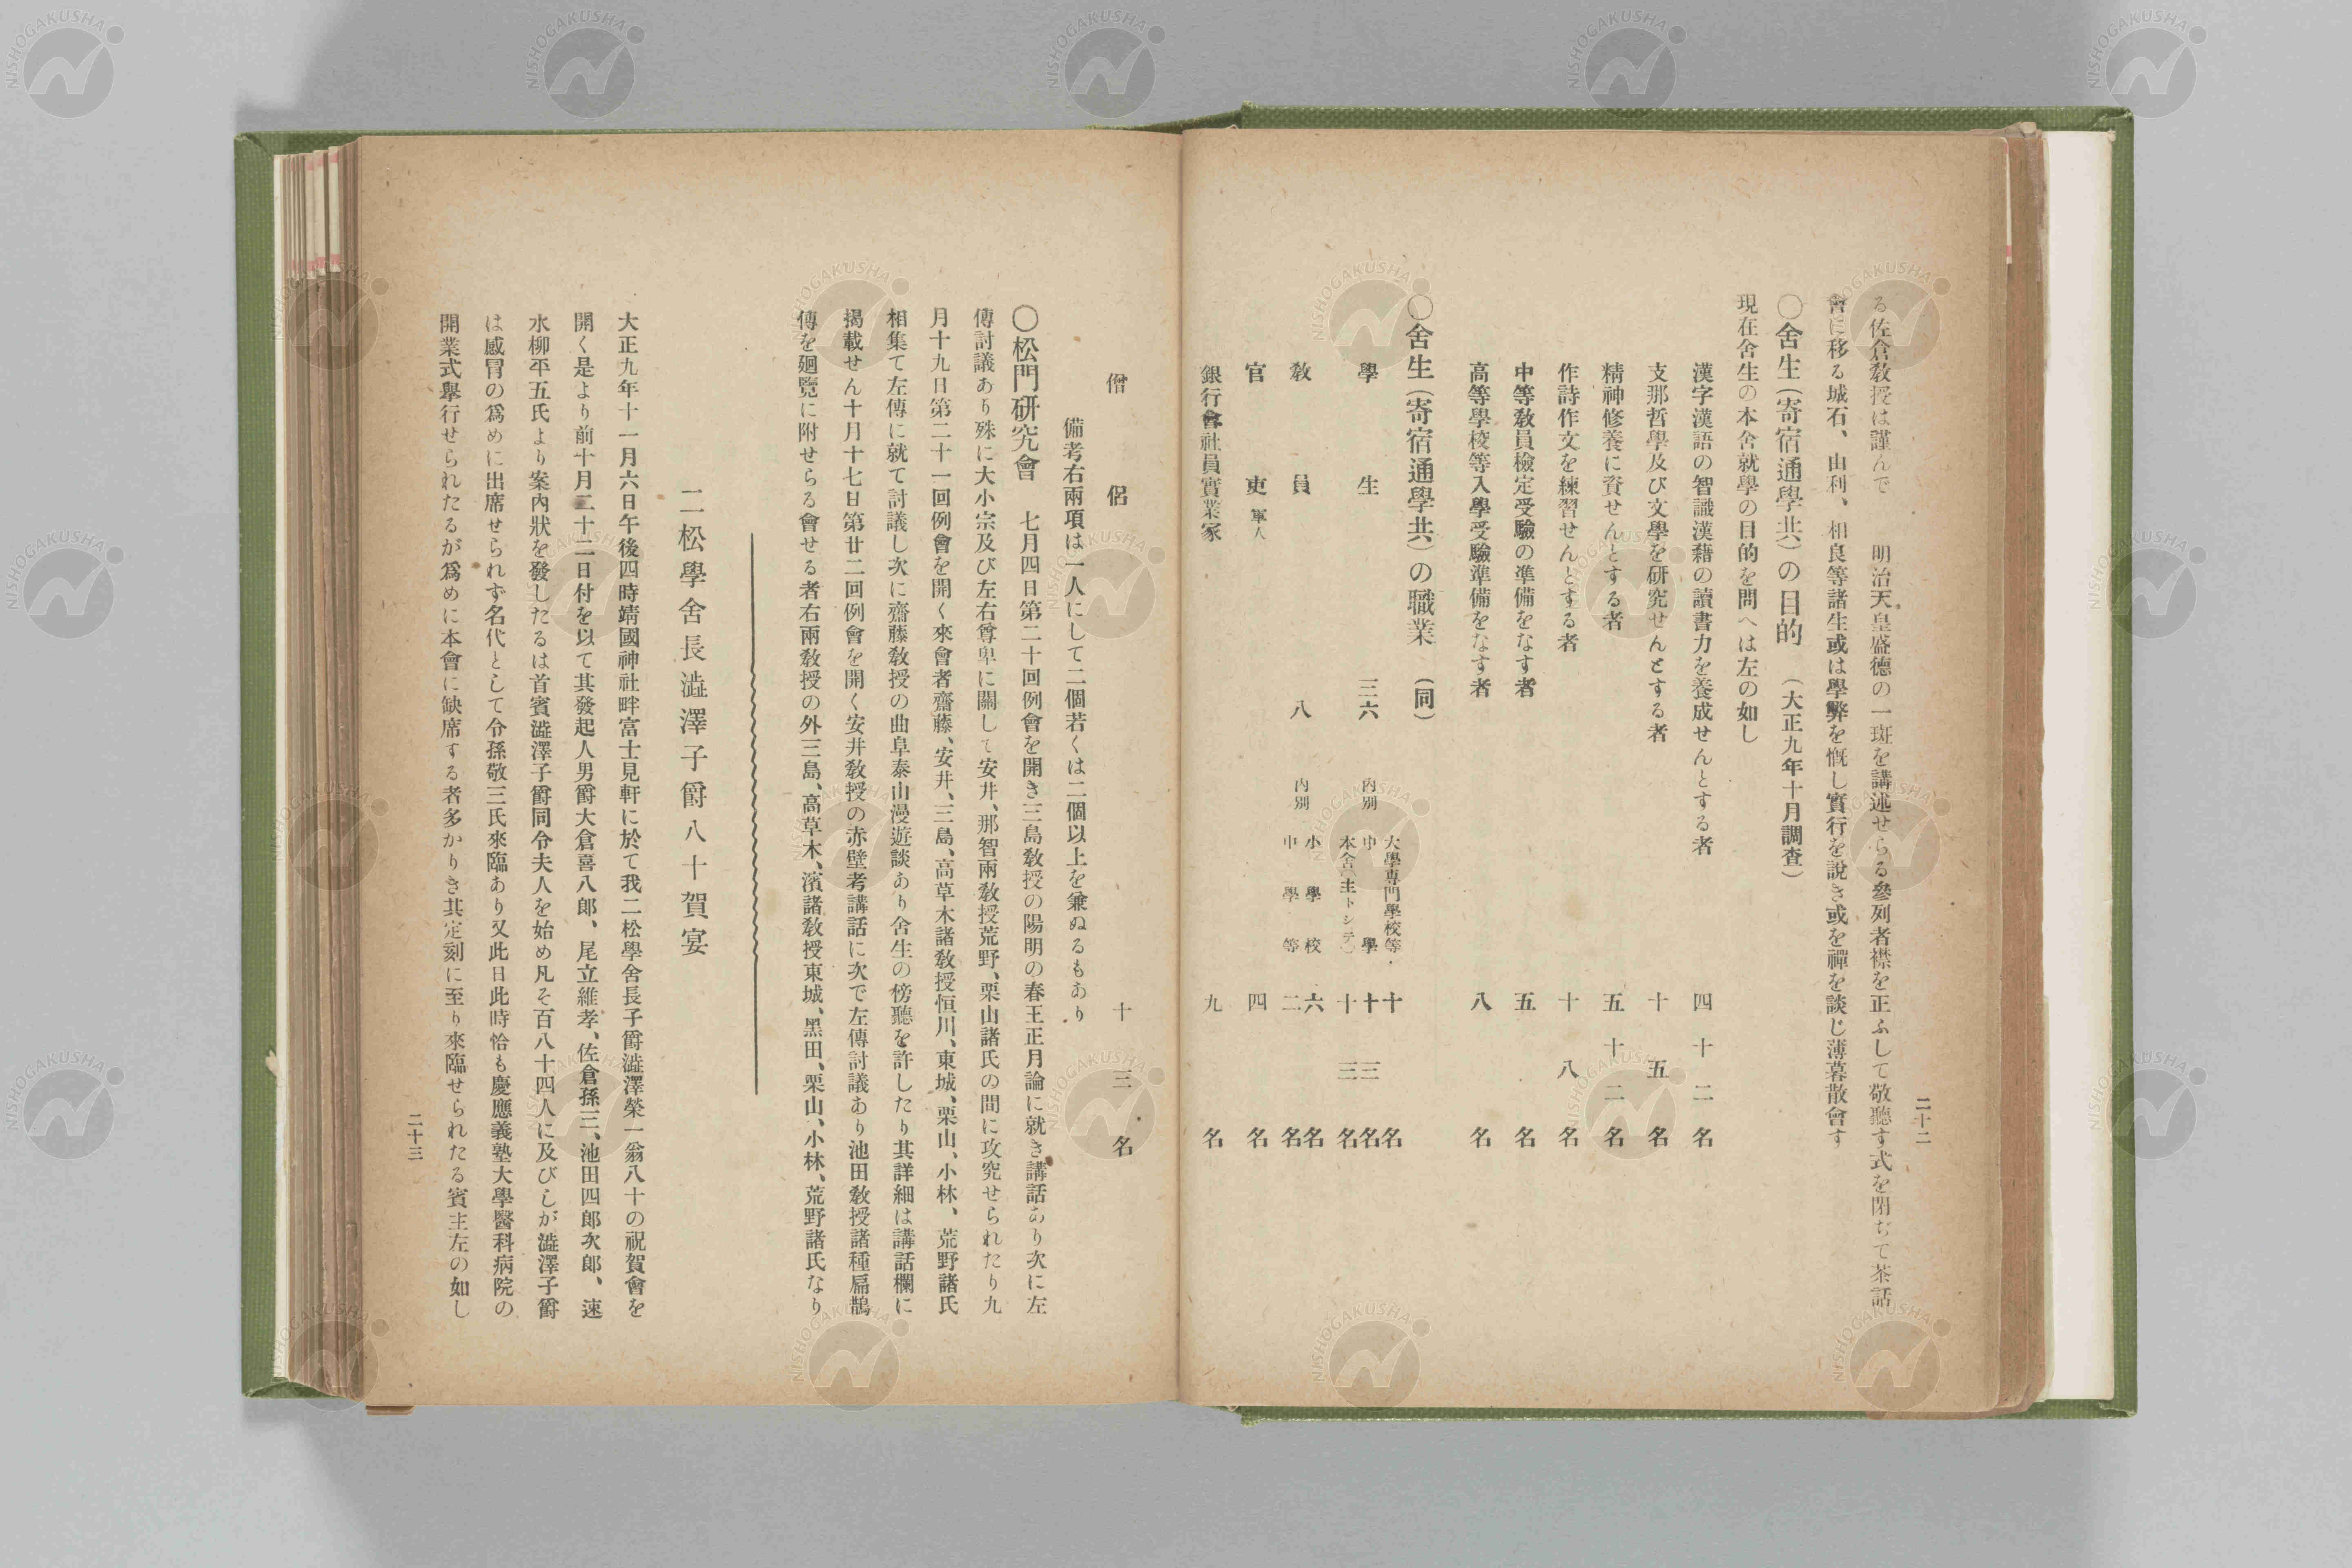 二十二
る佐倉敎授は謹んで　明治天皇盛德の一斑を講述せらる參列者襟を正ふして敬聽す式を閉ぢて茶話
會に移る城石、由利、相良等諸生或は學弊を慨し實行を說き或を禪を談じ薄暮散會す
〇舍生（寄宿通學共）の目的　（大正九年十月調査）
現在舍生の本舍就學の目的を問へは左の如し
漢字漢語の智識漢藉の讀書力を養成せんとする者　四十二名
支那哲學及び文學を硏究せんとする者　十五名
精神修養に資せんとする者　五十二名
作詩作文を練習せんとする者　十八名
中等敎員檢定受驗の準備をなす者　五名
高等學校等入學受驗準備をなす者　八名
〇舍生（寄宿通學共）の職業　（同）
學生　三六　內別　大學專門學校等　十名
中學　十三名
本舍（主トシテ）　十三名
敎員　八　內別　小學校　六名
中學等　二名
官吏軍人　四名
銀行會社員實業家　九名
僧侶　十三名
備考右兩項は一人にして二個若くは二個以上を兼ぬるもあり
〇松門硏究會　七月四日第二十回例會を開き三島敎授の陽明の春王正月論に就き講話あり次に左
傳討議あり殊に大小宗及び左右尊卑に關して安井、那智兩敎授荒野、栗山諸氏の間に攻究せられたり九
月十九日第二十一回例會を開く來會者齋藤、安井、三島、高草木諸敎授恒川、東城、栗山、小林、荒野諸氏
相集て左傳に就て討議し次に齋藤敎授の曲阜泰山漫遊談あり舍生の傍聽を許したり其詳細は講話欄に
揭載せん十月十七日第廿二回例會を開く安井敎授の赤壁考講話に次で左傳討議あり池田敎授諸種扁鵲
傳を廻覽に附せらる會せる者右兩敎授の外三島、高草木、濱諸敎授東城、黑田、栗山、小林、荒野諸氏なり
二松學舍長澁澤子爵八十賀宴
大正九年十一月六日午後四時靖國神社畔富士見軒に於て我二松學舍長子爵澁澤榮一翁八十の祝賀會を
開く是より前十月二十二日付を以て其發起人男爵大倉喜八郞、尾立維孝、佐倉孫三、池田四郞次郞、速
水柳平五氏より案內狀を發したるは首賓澁澤子爵同令夫人を始め凡そ百八十四人に及びしが澁澤子爵
は感冒の爲めに出席せられず名代として令孫敬三氏來臨あり又此日此時恰も慶應義塾大學醫科病院の
開業式擧行せられたるが爲めに本會に缺席する者多かりき其定刻に至り來臨せられたる賓主左の如し
二十三
NISHOGAKUSHA